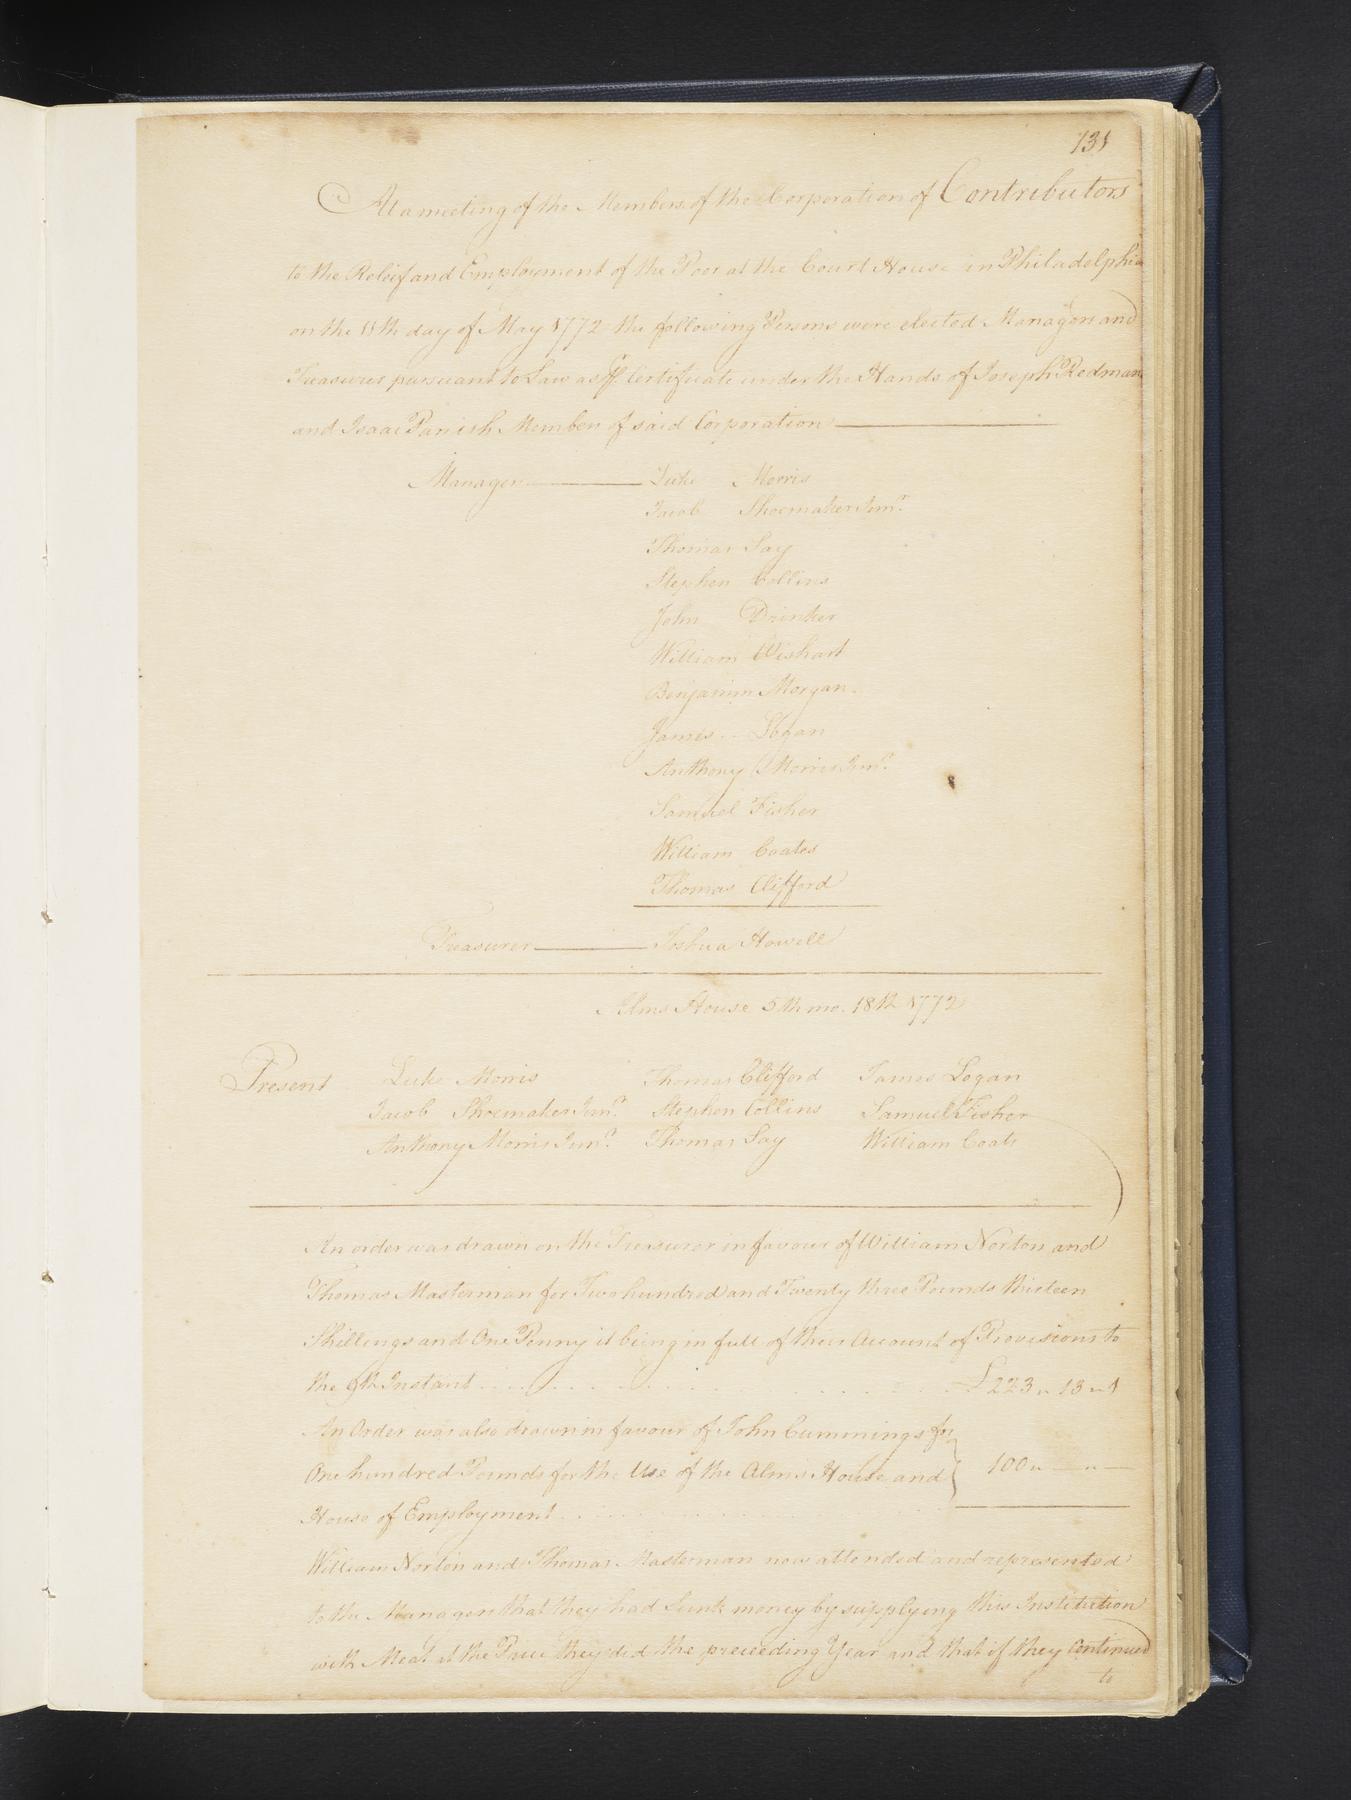 131
At a meeting of the Members of the Corporation of Contributors
to the Relief and Employment of the Poor at the Court House in Philadelphia
on the 11th day of May 1772 the following Persons were elected Managers and
Treasurer pursuant to Law as ⅌ Certificate under the Hands of Joseph Redman
and Isaac Parish Members of said Corporation
Managers Luke Morris
Jacob Shoemaker Junr.
Thomas Say
Stephen Collins
John Drinker
William Wishart
Benjamin Morgan.
James Logan
Anthony Morris Junr.
Samuel Fisher
William Coates
Thomas Clifford
Treasurer Joshua Howell
Alms House 5th mo. 18th 1772
Present Luke Morris Thomas Clifford James Logan
Jacob Shoemaker Junr. Stephen Collins Samuel Fisher
Anthony Morris Junr. Thomas Say William Coats
An order was drawn on the Treasurer in favour of William Norton and
Thomas Masterman for Two hundred and Twenty three Pounds thirteen
Shillings and One Penny it being in full of their Account of Provisions to
the 9th Instant . . . . . . . . . . £223 " 13 " 1
An Order was also drawn in favour of John Cummings for
One hundred Pounds for the Use of the Alms House and } 100 " — " —
House of Employment . . . . . . . .
William Norton and Thomas Masterman now attended and represented
to the Managers that they had Sunk money by supplying this Institution
with Meat at the Price they did the preceeding Year and that if they Continued
to